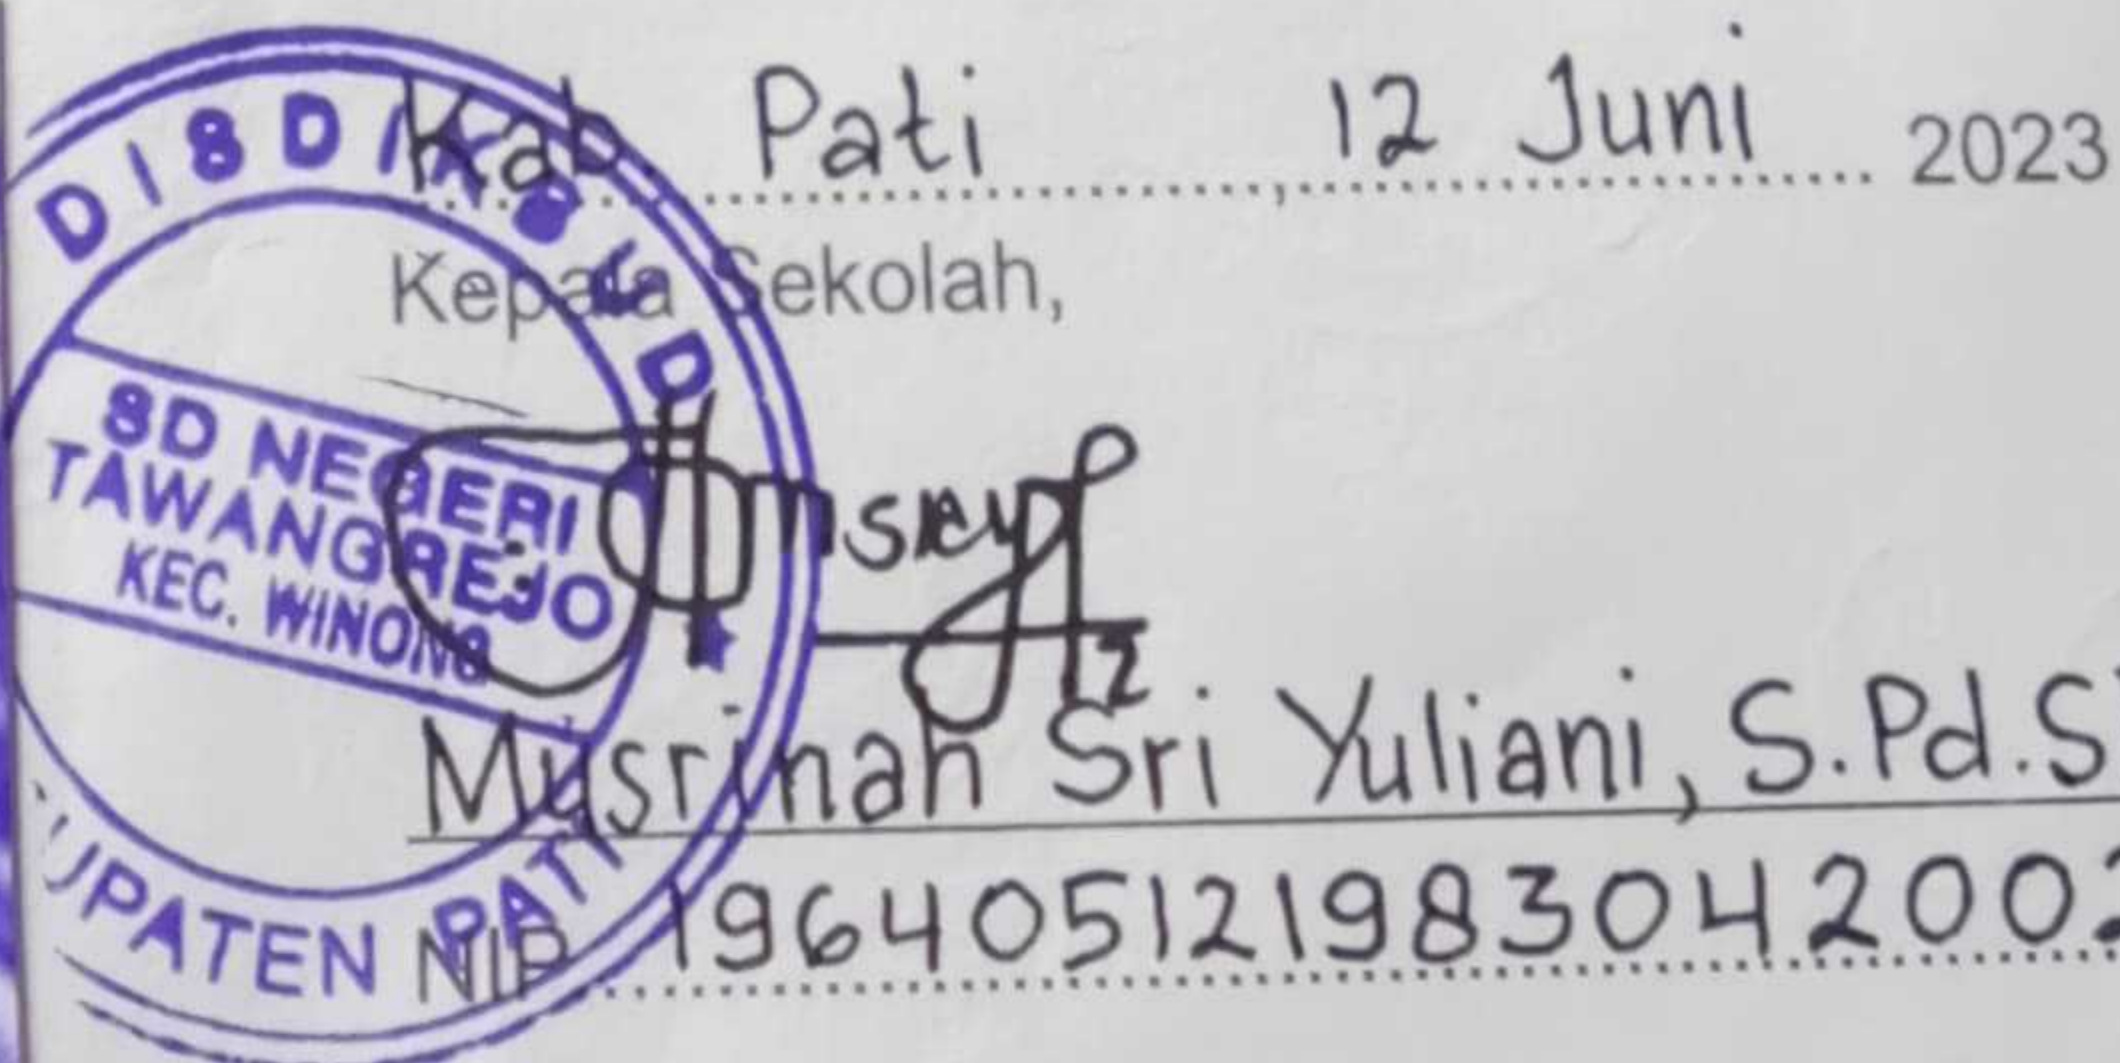 Kab. Pati, 12 Juni 2023
Kepala Sekolah,
DISDIKBUD
SD NEGERI
TAWANGREJO
KEC. WINONG
UPATEN PATI
Musrinah Sri Yuliani, S.Pd.S
NIP 196405121983042002